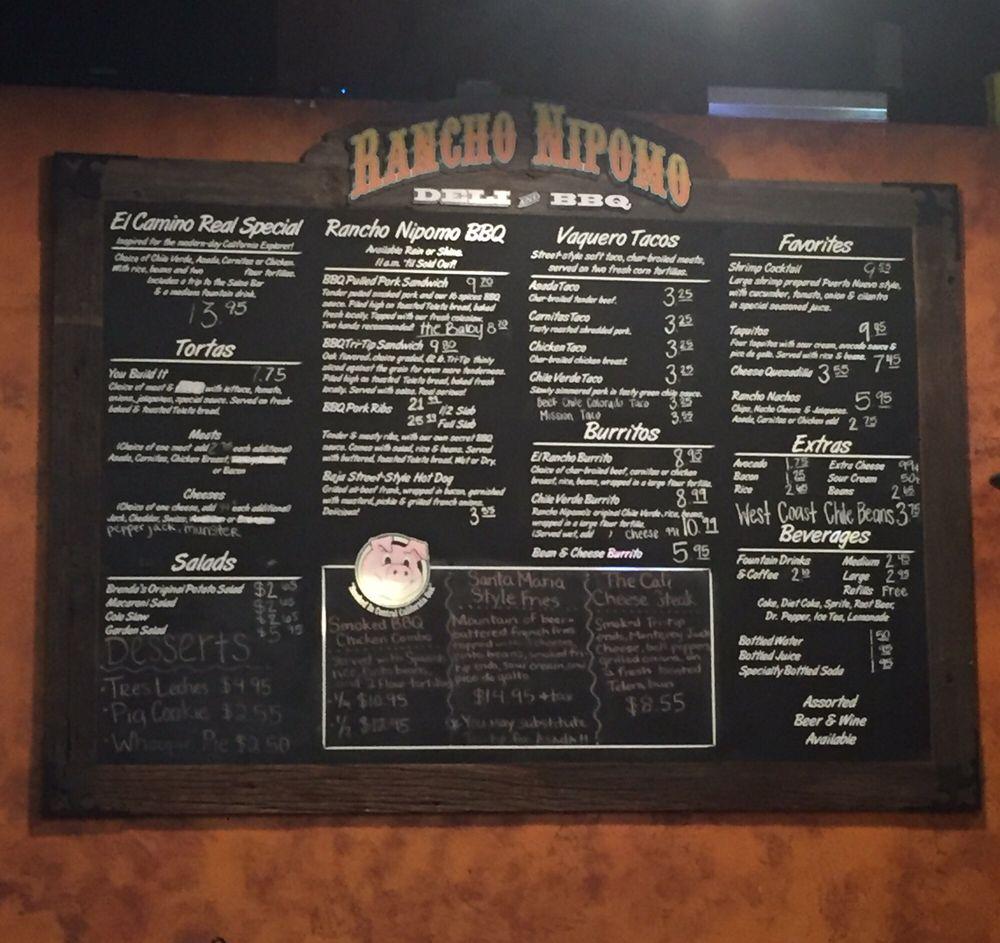 RANCHO NIPOMO
DELI AND BBQ
El Camino Real Special
Inspired for the modern-day California Explorer!
Choice of Chile Verde, Asada, Carnitas or Chicken.
With rice, beans and two flour tortillas.
Includes a trip to the Salsa Bar
& a medium fountain drink.
13.95
Tortas
You Build It 7.75
Choice of meat & with lettuce, tomato,
onions, jalapenos, special sauce. Served on fresh-
baked & toasted Telera bread.
Meats
(Choice of one meat add each additional)
Asada, Carnitas, Chicken Breast,
or Bacon
Cheeses
(Choice of one cheese, add each additional)
Jack, Cheddar, Swiss, or
pepper jack, munster
Salads
Brenda's Original Potato Salad $2
Macaroni Salad $2
Cole Slaw
Garden Salad $5
Desserts
· Tres Leches $4.95
· Pig Cookie $2.55
· Whoopie Pie $2.50
Rancho Nipomo BBQ
Available Rain or Shine.
11 a.m. 'til Sold Out!
BBQ Pulled Pork Sandwich 9
Tender pulled smoked pork and our 16 spices BBQ
sauce. Piled high on toasted Telera bread, baked
fresh locally. Topped with our fresh coleslaw.
Two hands recommended the Baby 8
BBQ Tri-Tip Sandwich 9
Oak flavored, choice graded, Tri-Tip thinly
sliced against the grain for even more tenderness.
Piled high on toasted Telera bread, baked fresh
locally. Served with salsa.
BBQ Pork Ribs 21 1/2 Slab
25 Full Slab
Tender & meaty ribs, with our own secret BBQ
sauce. Comes with salad, rice & beans. Served
with buttered, toasted Telera bread. Wet or Dry.
Baja Street-Style Hot Dog
Grilled all-beef frank, wrapped in bacon, garnished
with mustard, pickle & grilled french onions.
Delicioso! 3
Vaquero Tacos
Street-style soft taco, char-broiled meats,
served on two fresh corn tortillas.
Asada Taco 3.25
Char-broiled tender beef.
Carnitas Taco 3.25
Tasty roasted shredded pork.
Chicken Taco 3.25
Char-broiled chicken breast.
Chile Verde Taco 3.25
Slowly simmered pork in tasty green chile sauce.
Beef Chile Colorado Taco 3
Mission Taco 3
Burritos
El Rancho Burrito 8.95
Choice of char-broiled beef, carnitas or chicken
breast, rice, beans, wrapped in a large flour tortilla.
Chile Verde Burrito 8.99
Rancho Nipomo's original Chile Verde, rice, beans,
wrapped in a large flour tortilla.
(Served wet, add ) cheese 99¢ 10
Bean & Cheese Burrito 5.95
Favorites
Shrimp Cocktail 9
Large shrimp prepared Puerto Nuevo style,
with cucumber, tomato, onion & cilantro
in special seasoned juice.
Taquitos 9
Four taquitos with sour cream, avocado sauce &
pico de gallo. Served with rice & beans. 7.45
Cheese Quesadilla 3.55
Rancho Nachos 5.95
Chips, Nacho Cheese & Jalapenos.
Asada, Carnitas or Chicken add 2.75
Extras
Avocado 1.75 Extra Cheese 99¢
Bacon 1.25 Sour Cream 50¢
Rice 2 Beans 2
West Coast Chile Beans 3.75
Beverages
Fountain Drinks Medium 2
& Coffee 2 Large 2.95
Refills Free
Coke, Diet Coke, Sprite, Root Beer,
Dr. Pepper, Ice Tea, Lemonade
Bottled Water 1.50
Bottled Juice 1.95
Specialty Bottled Soda 1.95
Assorted
Beer & Wine
Available
Smoked BBQ
Chicken Combo
Served with
rice,
2 flour tortillas
· 1/4 $10.95
· 1/2 $12.95
Santa Maria
Style Fries
Mountain of beer-
battered french fries
topped with
beans, smoked tri
tip ends, sour cream and
pico de gallo
$14.95 + tax
You may substitute
The Cali
Cheese Steak
Smoked Tri-tip
ends, Monterey Jack
cheese, bell peppers
grilled onions on
a fresh toasted
Telera bun
$8.55